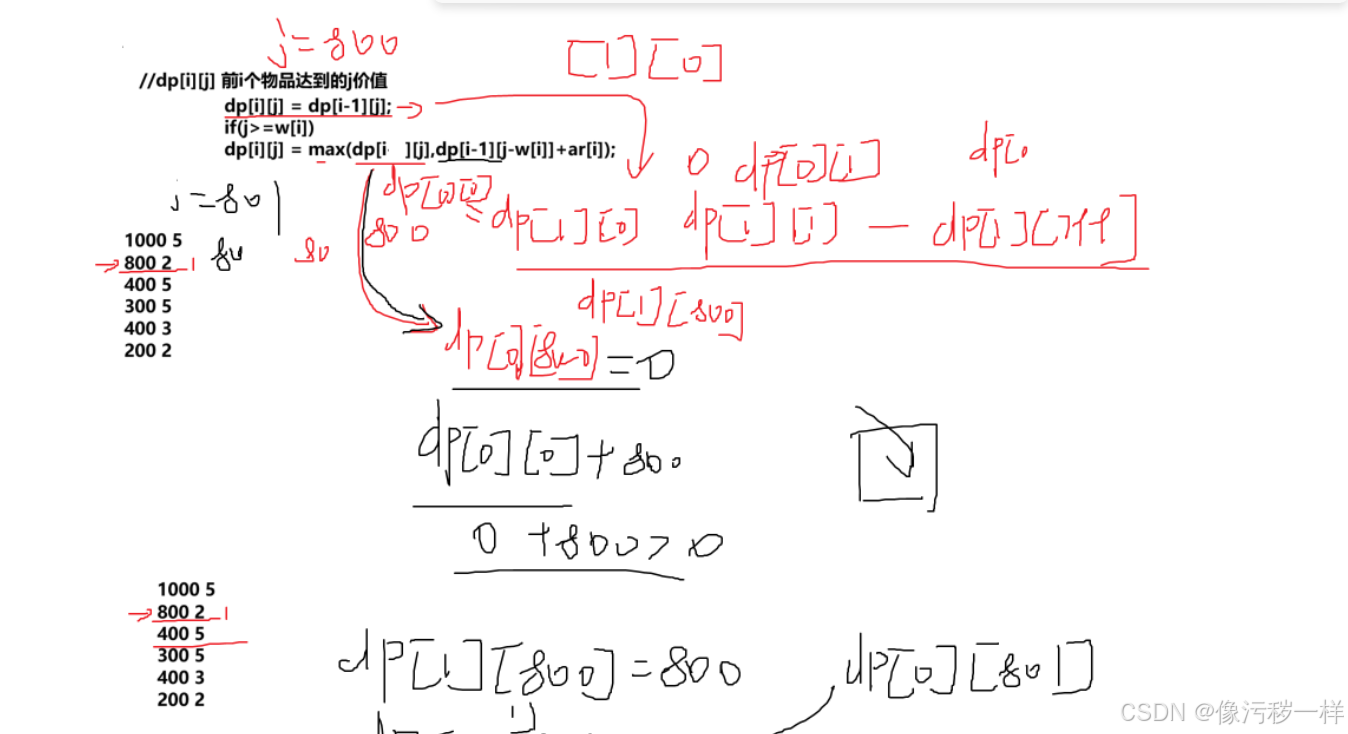 j=800
[1][0]
//dp[i][j] 前i个物品达到的j价值
dp[i][j] = dp[i-1][j];
if(j>=w[i])
dp[i][j] = max(dp[i ][j],dp[i-1][j-w[i]]+ar[i]);
0 dp[0][1] dp[0
j=801
dp[0][0]
800
dp[1][0] dp[1][1] — dp[1][799]
1000 5
800 2 1
80 80
400 5
300 5
400 3
200 2
dp[1][800]
dp[0][800]=0
dp[0][0]+800
0+800>0
1000 5
800 2 1
400 5
300 5
400 3
200 2
dp[1][800]=800
dp[0][801]
CSDN @像污秽一样